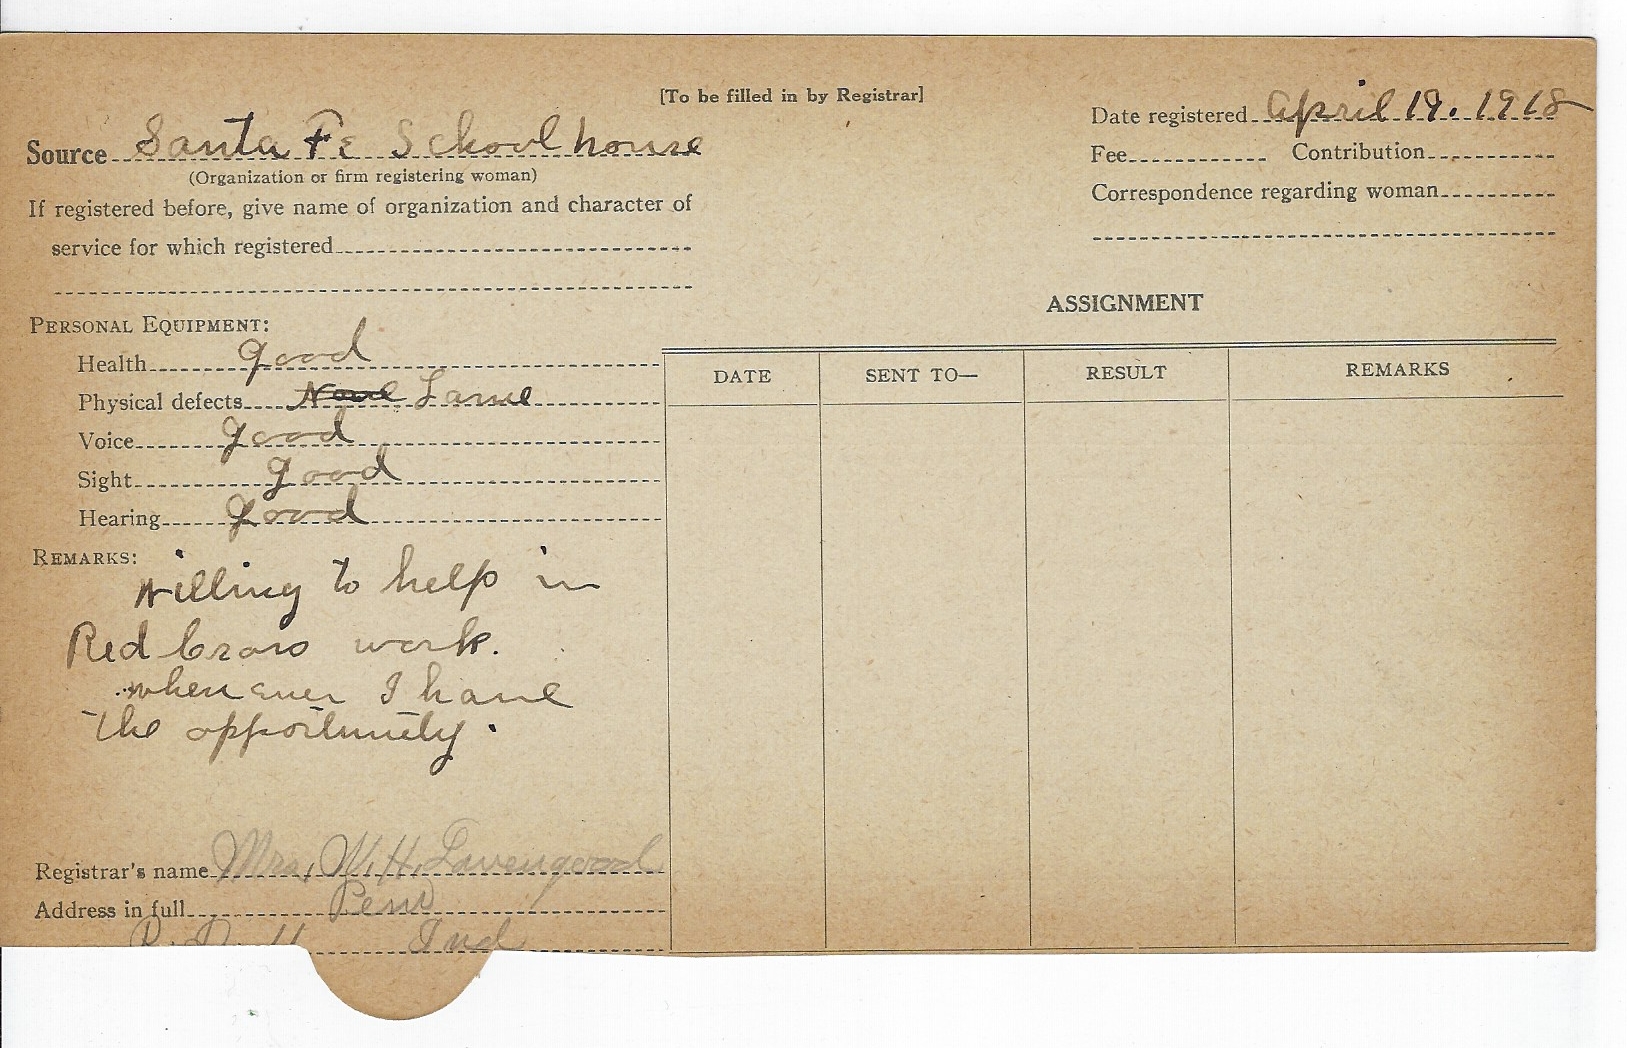 [To be filled in by Registrar]
Date registered April 19. 1918
Source Santa Fe Schoolhouse
(Organization or firm registering woman)
Fee Contribution
If registered before, give name of organization and character of
service for which registered
Correspondence regarding woman
ASSIGNMENT
PERSONAL EQUIPMENT:
Health good
Physical defects None Lame
Voice good
Sight good
Hearing good
DATE SENT TO— RESULT REMARKS
REMARKS:
Willing to help in
Red Cross work.
when ever I have
the opportunity.
Registrar's name Mrs. W. H. Lavengood
Address in full Peru
R. D. Ind